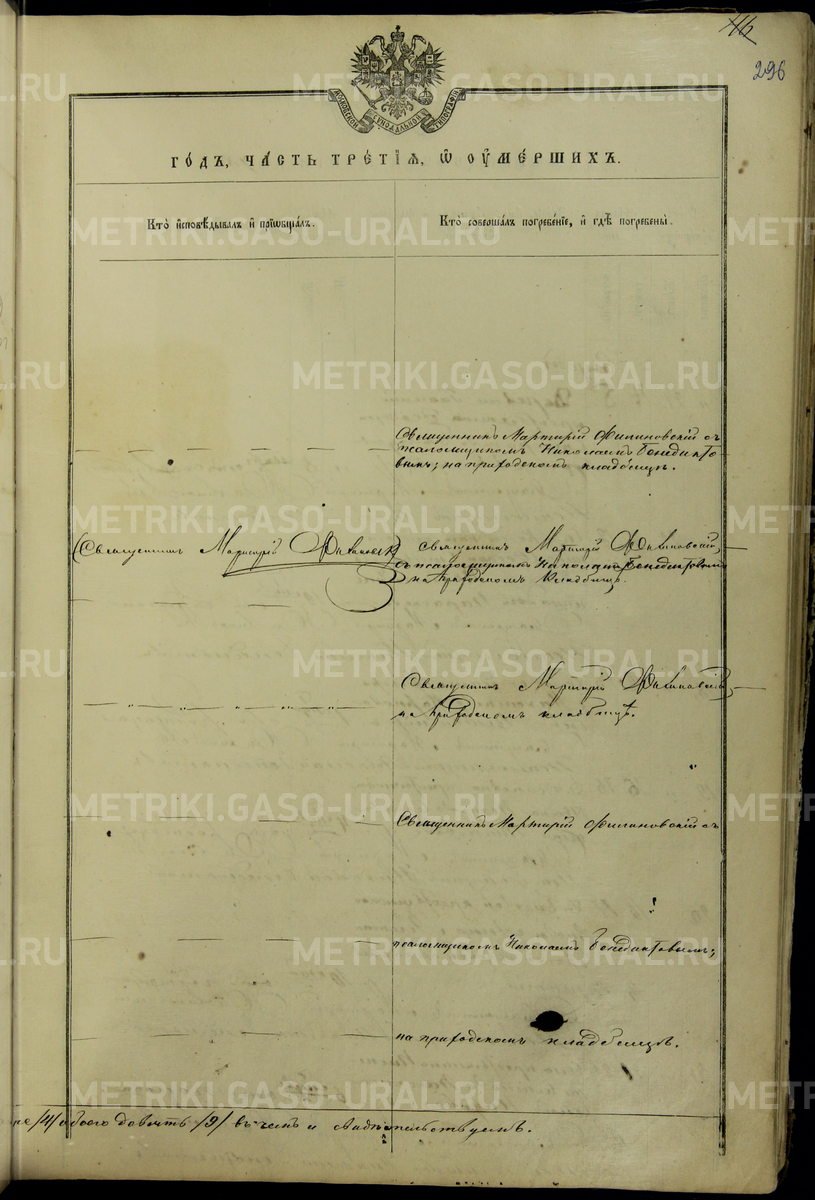 46
296
МОСКОВСКОЙ СѴНОДАЛЬНОЙ ТИПОГРАФІИ
ГОДЪ, ЧАСТЬ ТРЕТІѦ, Ѡ ОУМЕРШИХЪ.
Кто исповѣдывалъ и пріѡбщалъ.
Кто совершалъ погребеніе, и гдѣ погребены.
Священникъ Мартирій Филиновскій съ
псаломщикомъ Николаемъ Бенедикто-
вымъ; на приходскомъ кладбищѣ.
Священникъ Мартирій Филиновскій
Священникъ Мартирій Филиновскій,
съ псаломщикомъ Николаемъ Бенедиктовымъ
на приходскомъ кладбищѣ.
Священникъ Мартирій Филиновскій
на приходскомъ кладбищѣ.
Священникъ Мартирій Филиновскій съ
псаломщикомъ Николаемъ Бенедиктовымъ;
на приходскомъ кладбищѣ.
/4/ обоего девять /9/ въ чемъ и свидѣтельствуемъ.
METRIKI.GASO-URAL.RU